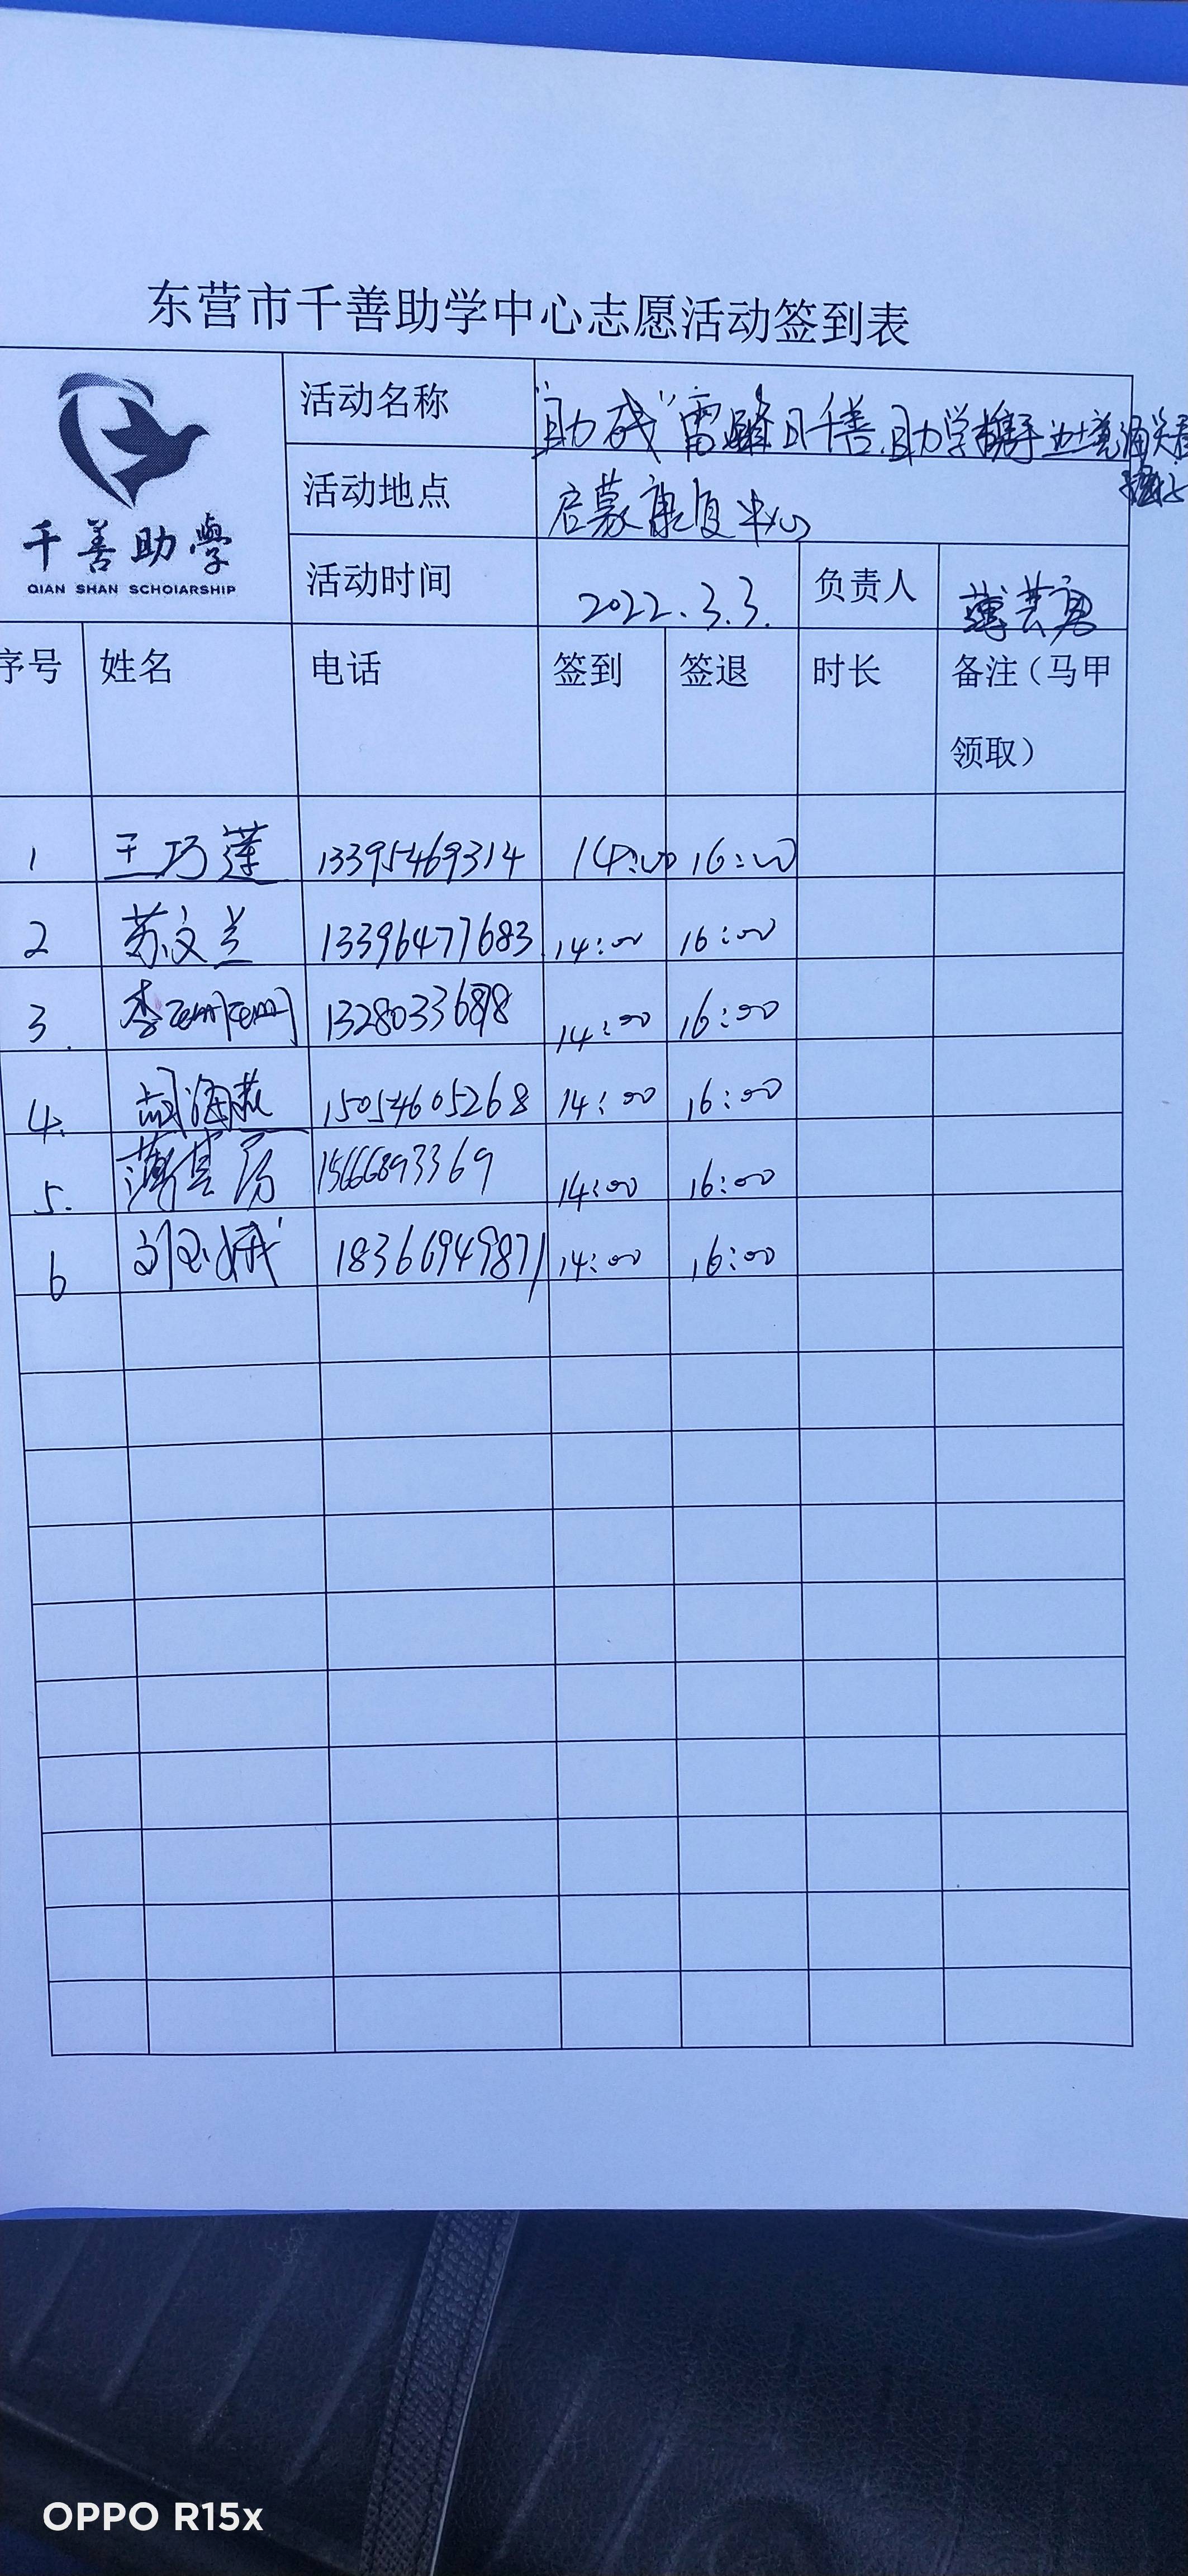 东营市千善助学中心志愿活动签到表
千善助學
QIAN SHAN SCHOIARSHIP
活动名称 "助残"雷锋日千善助学携手
活动地点 启蒙康复中心
活动时间 2022.3.3. 负责人
序号 姓名 电话 签到 签退 时长 备注（马甲
领取）
1 王巧莲 13395469314 14:00 16:00
2 苏文兰 13396477683 14:00 16:00
3. 李 14:00 16:00
4. 胡海燕 15054605268 14:00 16:00
5. 薄其 15666893369 14:00 16:00
6 刘玉娥 18366949871 14:00 16:00
OPPO R15x